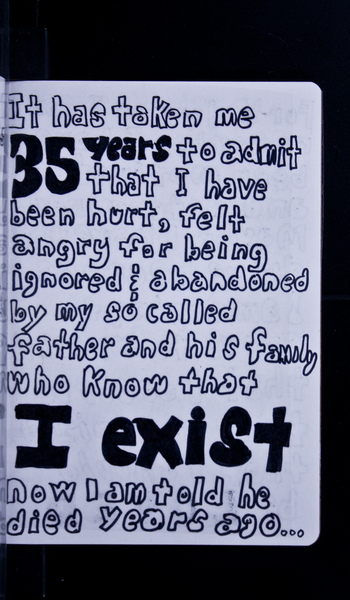 It has taken me
35 years to admit
that I have
been hurt, felt
angry for being
ignored & abandoned
by my so called
father and his family
who know that
I exist
now I am told he
died years ago...